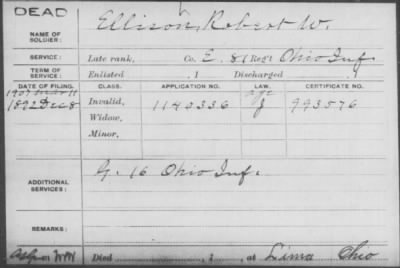 DEAD
NAME OF SOLDIER: Ellison, Robert W.
SERVICE: Late rank, Co. E, 81 Reg't Ohio Inf.
TERM OF SERVICE: Enlisted , 1 Discharged , 1
DATE OF FILING. CLASS. APPLICATION NO. LAW. CERTIFICATE NO.
1907 Mar 11 age
1892 Dec 8 Invalid, 1140336 J 993576
Widow,
Minor,
ADDITIONAL SERVICES: G. 16 Ohio Inf.
REMARKS:
Died , 1 , at Lima Ohio